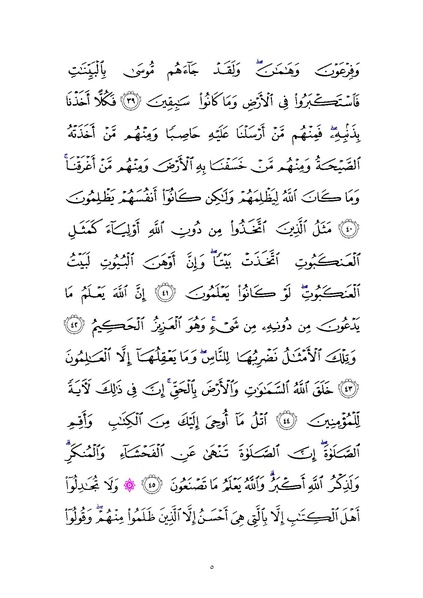 وَفِرْعَوْنَ وَهَٰمَٰنَۖ وَلَقَدْ جَآءَهُم مُّوسَىٰ بِٱلْبَيِّنَٰتِ
فَٱسْتَكْبَرُوا۟ فِى ٱلْأَرْضِ وَمَا كَانُوا۟ سَٰبِقِينَ ٣٩ فَكُلًّا أَخَذْنَا
بِذَنۢبِهِۦۖ فَمِنْهُم مَّنْ أَرْسَلْنَا عَلَيْهِ حَاصِبًا وَمِنْهُم مَّنْ أَخَذَتْهُ
ٱلصَّيْحَةُ وَمِنْهُم مَّنْ خَسَفْنَا بِهِ ٱلْأَرْضَ وَمِنْهُم مَّنْ أَغْرَقْنَاۚ
وَمَا كَانَ ٱللَّهُ لِيَظْلِمَهُمْ وَلَٰكِن كَانُوٓا۟ أَنفُسَهُمْ يَظْلِمُونَ
٤٠ مَثَلُ ٱلَّذِينَ ٱتَّخَذُوا۟ مِن دُونِ ٱللَّهِ أَوْلِيَآءَ كَمَثَلِ
ٱلْعَنكَبُوتِ ٱتَّخَذَتْ بَيْتًاۖ وَإِنَّ أَوْهَنَ ٱلْبُيُوتِ لَبَيْتُ
ٱلْعَنكَبُوتِۖ لَوْ كَانُوا۟ يَعْلَمُونَ ٤١ إِنَّ ٱللَّهَ يَعْلَمُ مَا
يَدْعُونَ مِن دُونِهِۦ مِن شَىْءٍۚ وَهُوَ ٱلْعَزِيزُ ٱلْحَكِيمُ ٤٢
وَتِلْكَ ٱلْأَمْثَٰلُ نَضْرِبُهَا لِلنَّاسِۖ وَمَا يَعْقِلُهَآ إِلَّا ٱلْعَٰلِمُونَ
٤٣ خَلَقَ ٱللَّهُ ٱلسَّمَٰوَٰتِ وَٱلْأَرْضَ بِٱلْحَقِّۚ إِنَّ فِى ذَٰلِكَ لَءَايَةً
لِّلْمُؤْمِنِينَ ٤٤ ٱتْلُ مَآ أُوحِىَ إِلَيْكَ مِنَ ٱلْكِتَٰبِ وَأَقِمِ
ٱلصَّلَوٰةَۖ إِنَّ ٱلصَّلَوٰةَ تَنْهَىٰ عَنِ ٱلْفَحْشَآءِ وَٱلْمُنكَرِۗ
وَلَذِكْرُ ٱللَّهِ أَكْبَرُۗ وَٱللَّهُ يَعْلَمُ مَا تَصْنَعُونَ ٤٥ ۞ وَلَا تُجَٰدِلُوٓا۟
أَهْلَ ٱلْكِتَٰبِ إِلَّا بِٱلَّتِى هِىَ أَحْسَنُ إِلَّا ٱلَّذِينَ ظَلَمُوا۟ مِنْهُمْۖ وَقُولُوٓا۟
٥